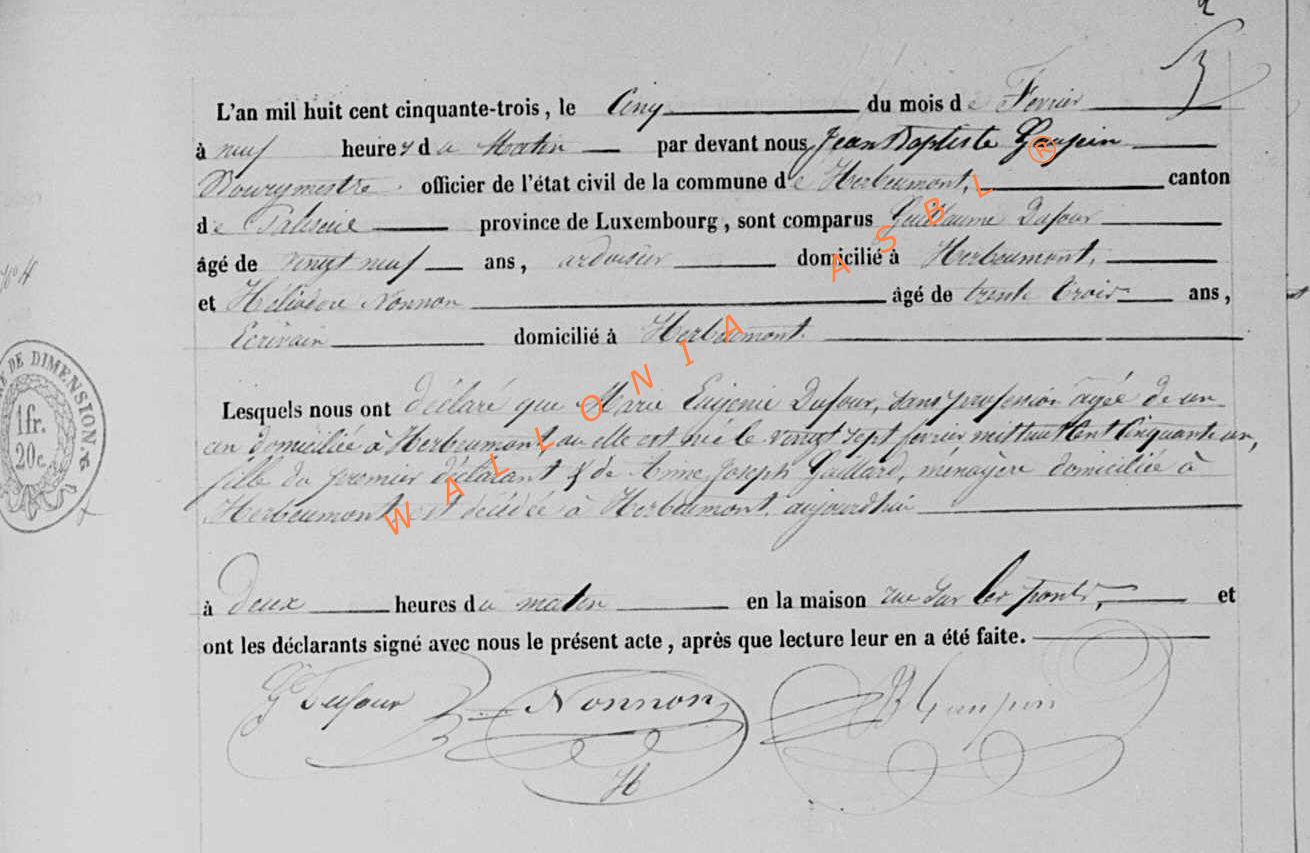 2
3
L'an mil huit cent cinquante-trois, le Cinq du mois de Fevrier
à neuf heures du Matin par devant nous Jean Baptiste Gaupin
Bourgmestre officier de l'état civil de la commune de Herbeumont, canton
de Paliseul province de Luxembourg, sont comparus Guillaume Dufour
âgé de vingt neuf ans, ardoisier domicilié à Herbeumont,
et Héliodore Nonnon âgé de trente trois ans,
Ecrivain domicilié à Herbeumont.
Lesquels nous ont déclaré que Marie Eugenie Dufour, sans profession agée de un
an domiciliée à Herbeumont, ou elle est née le vingt sept fevrier mil huit Cent Cinquante un,
fille du premier déclarant & de Anne Joseph Gaillard, ménagère domiciliée à
Herbeumont, est décédée à Herbeumont, aujourd'hui
à Deux heures du matin en la maison rue sur les ponts, et
ont les déclarants signé avec nous le présent acte, après que lecture leur en a été faite.
Ge Dufour Nonnon JB Gaupin
H
N° 4
DE DIMENSION.
1fr.
20c.
WALLONIA ASBL ®